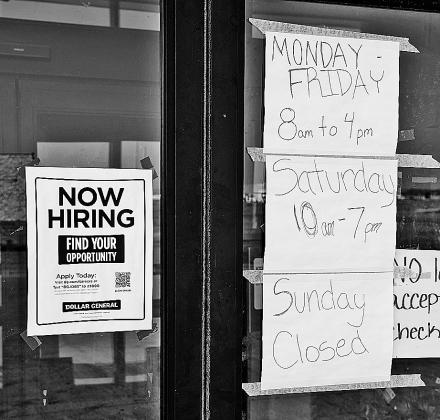 NOW
HIRING
FIND YOUR
OPPORTUNITY
Apply Today:
DOLLAR GENERAL
MONDAY -
FRIDAY
8am to 4pm
Saturday
10am - 7pm
Sunday
Closed
NO
accep
check